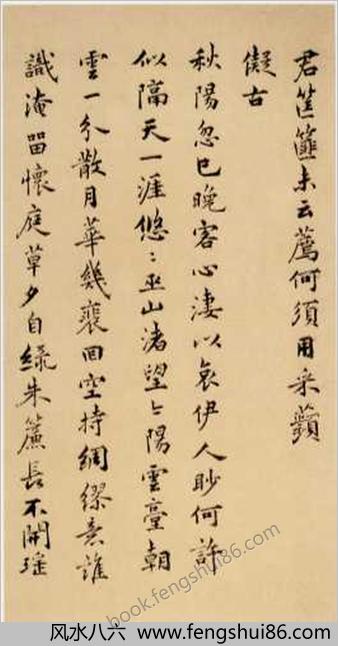 君筐篚未云薦何須用采蘋
儗古
秋陽忽已晚客心淒以哀伊人眇何許
似隔天一涯悠〻巫山渚望〻陽雲臺朝
雲一分散月華幾裴回空持綢繆意誰
識淹留懷庭草夕自綠朱簾長不開瑤
book.fengshui86.com
风水八六 www.fengshui86.com